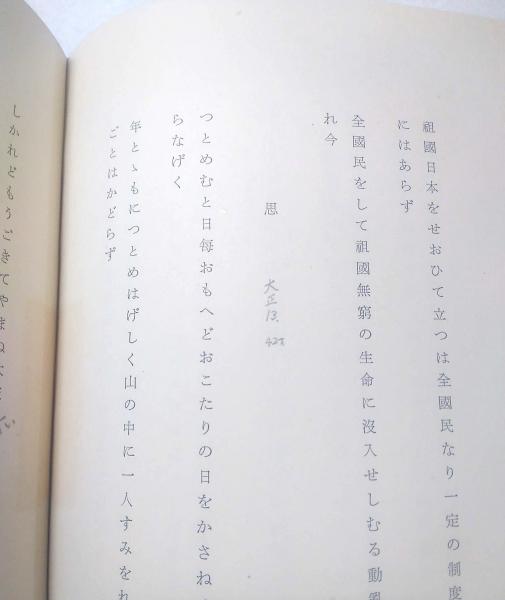 祖國日本をせおひて立つは全國民なり一定の制度
にはあらず
全國民をして祖國無窮の生命に沒入せしむる動
れ今
思
大正13.
つとめむと日每おもへどおこたりの日をかさね
らなげく
年とゝもにつとめはげしく山の中に一人すみをれ
ごとはかどらず
しかれどもうごきてやまね